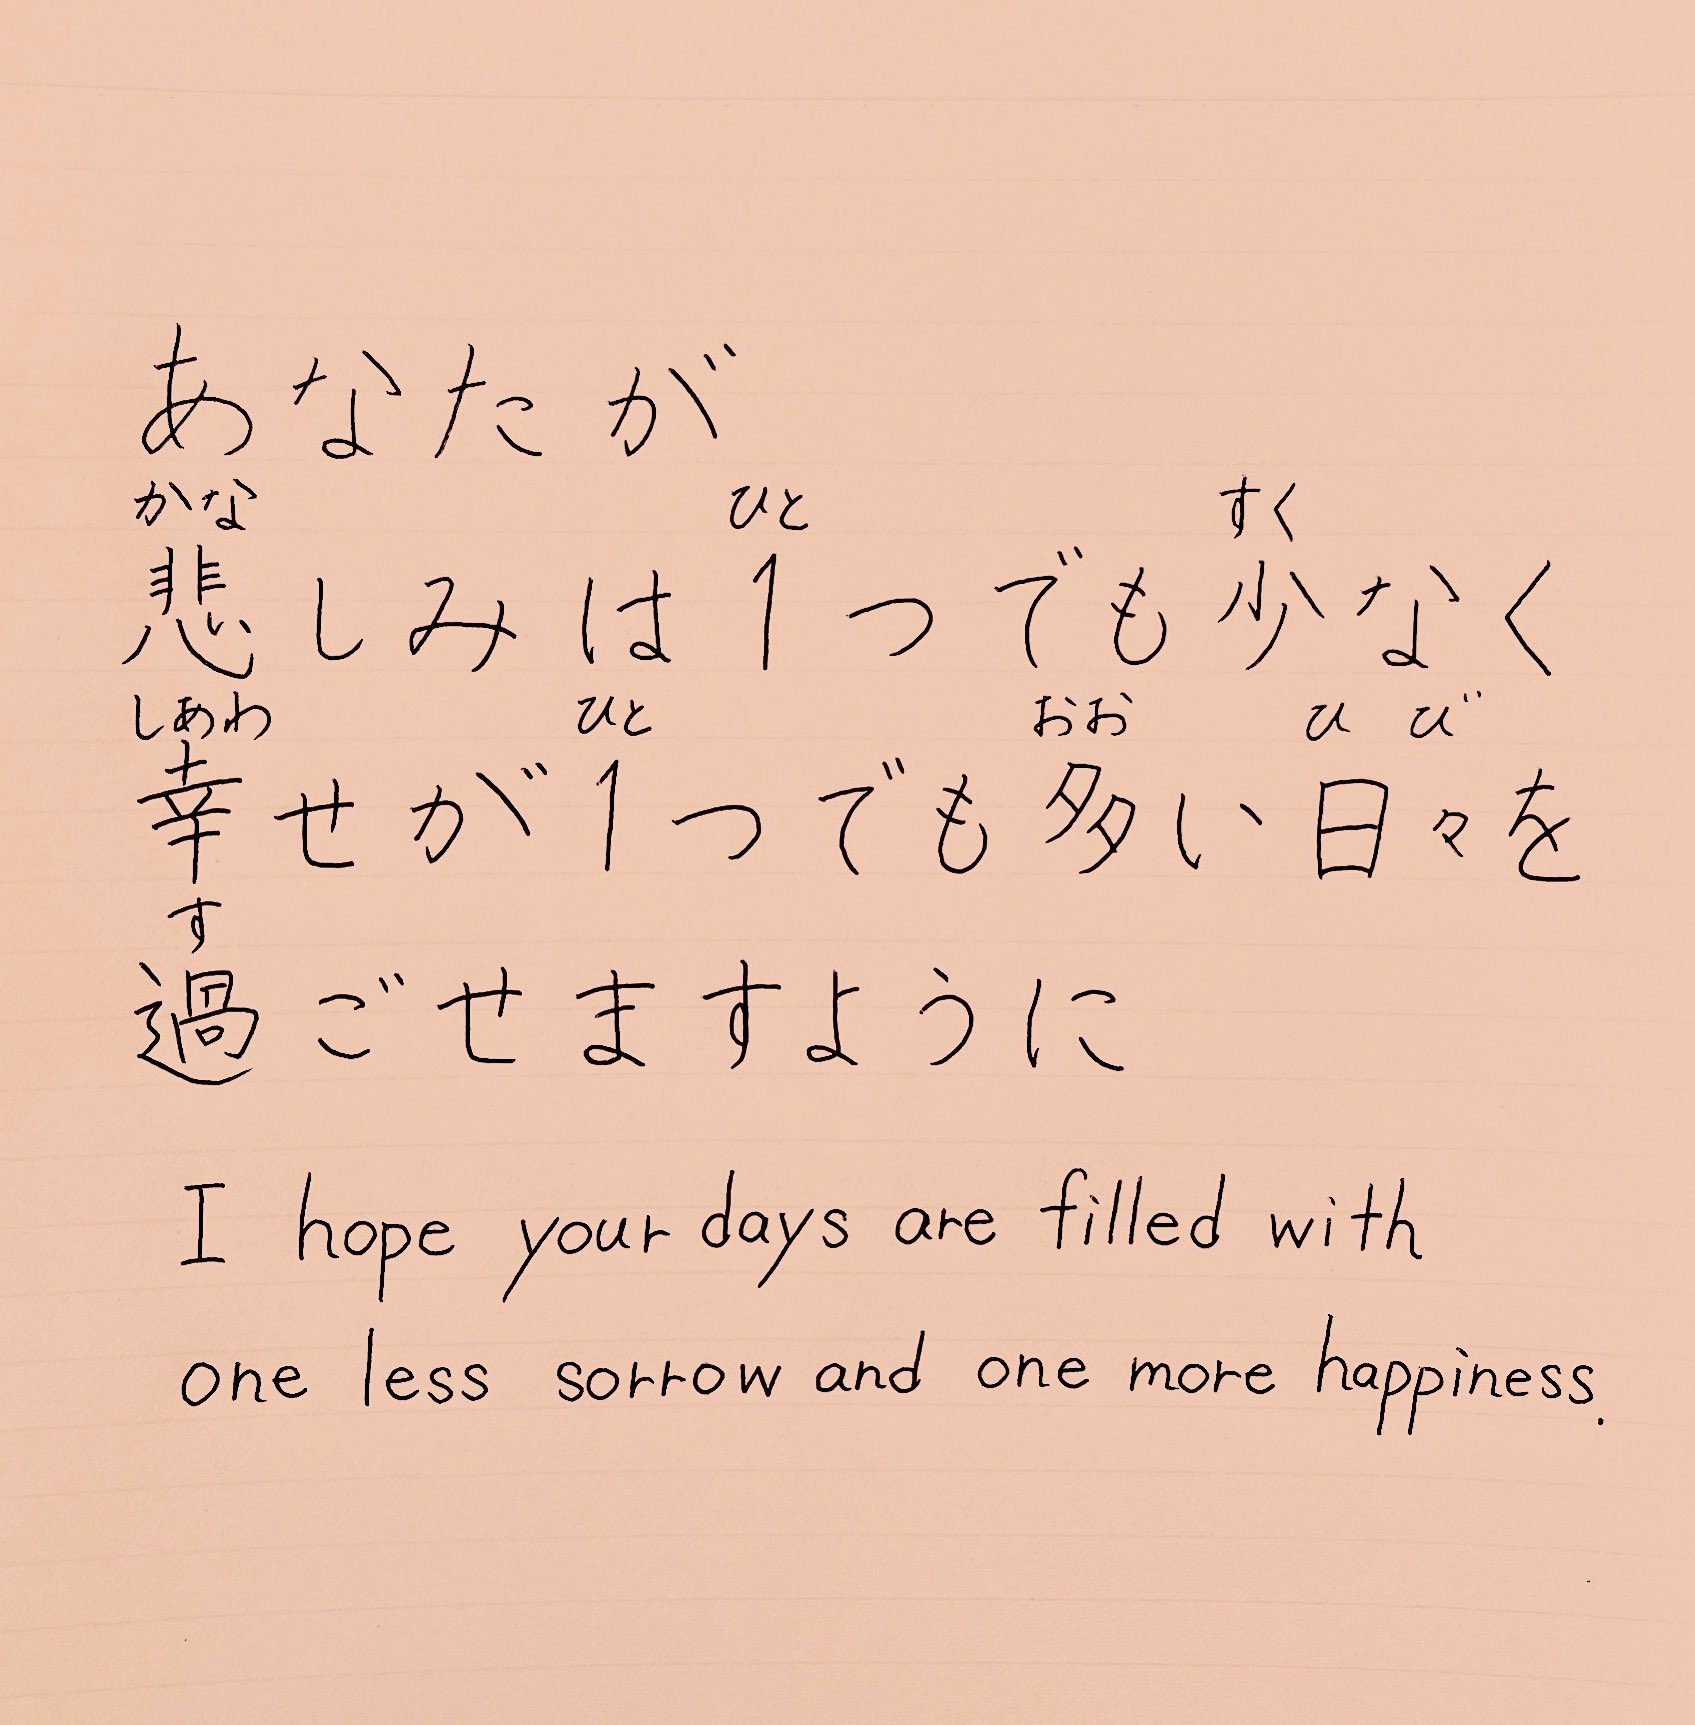 あなたが
かな ひと すく
悲しみは1つでも少なく
しあわ ひと おお ひ び
幸せが1つでも多い日々を
す
過ごせますように
I hope your days are filled with
one less sorrow and one more happiness.